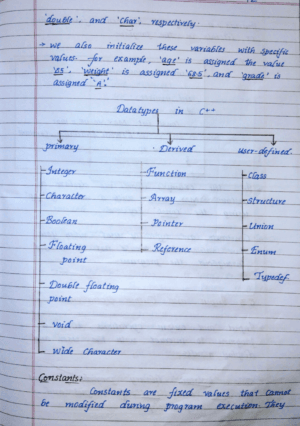 'double', and 'char', respectively.
→ we also initialize these variables with specific
values. for example, 'age' is assigned the value
'weight' is assigned and 'grade' is
assigned 'A'.
Datatypes in C++
primary
Derived
user-defined.
Integer
Character
Boolean
Floating
point
Double floating
point
void
wide character
Function
Array
Pointer
Reference
Class
structure
union
Enum
Typedef
Constants:
Constants are fixed values that cannot
be modified during program execution. They